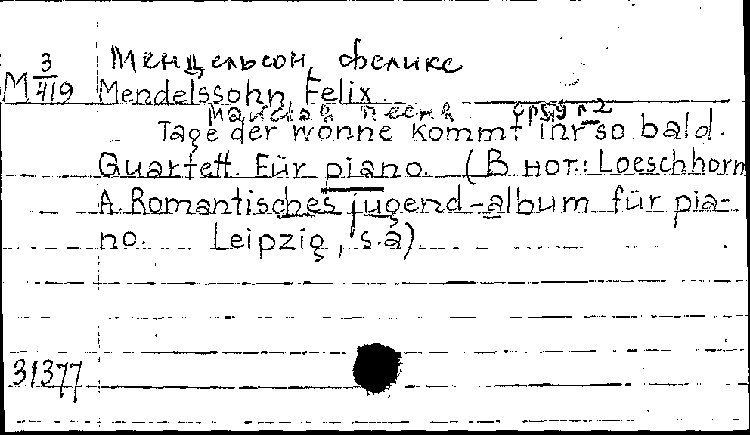 Мендельсон, Феликс
М 3/419 Mendelssohn, Felix
Майская песня ор. 9 № 2
Tage der wonne kommt ihr so bald.
Quartett. Für piano. (В нот.: Loeschhorn
A. Romantisches jugend-album für pia-
no. Leipzig, s.a)
31377